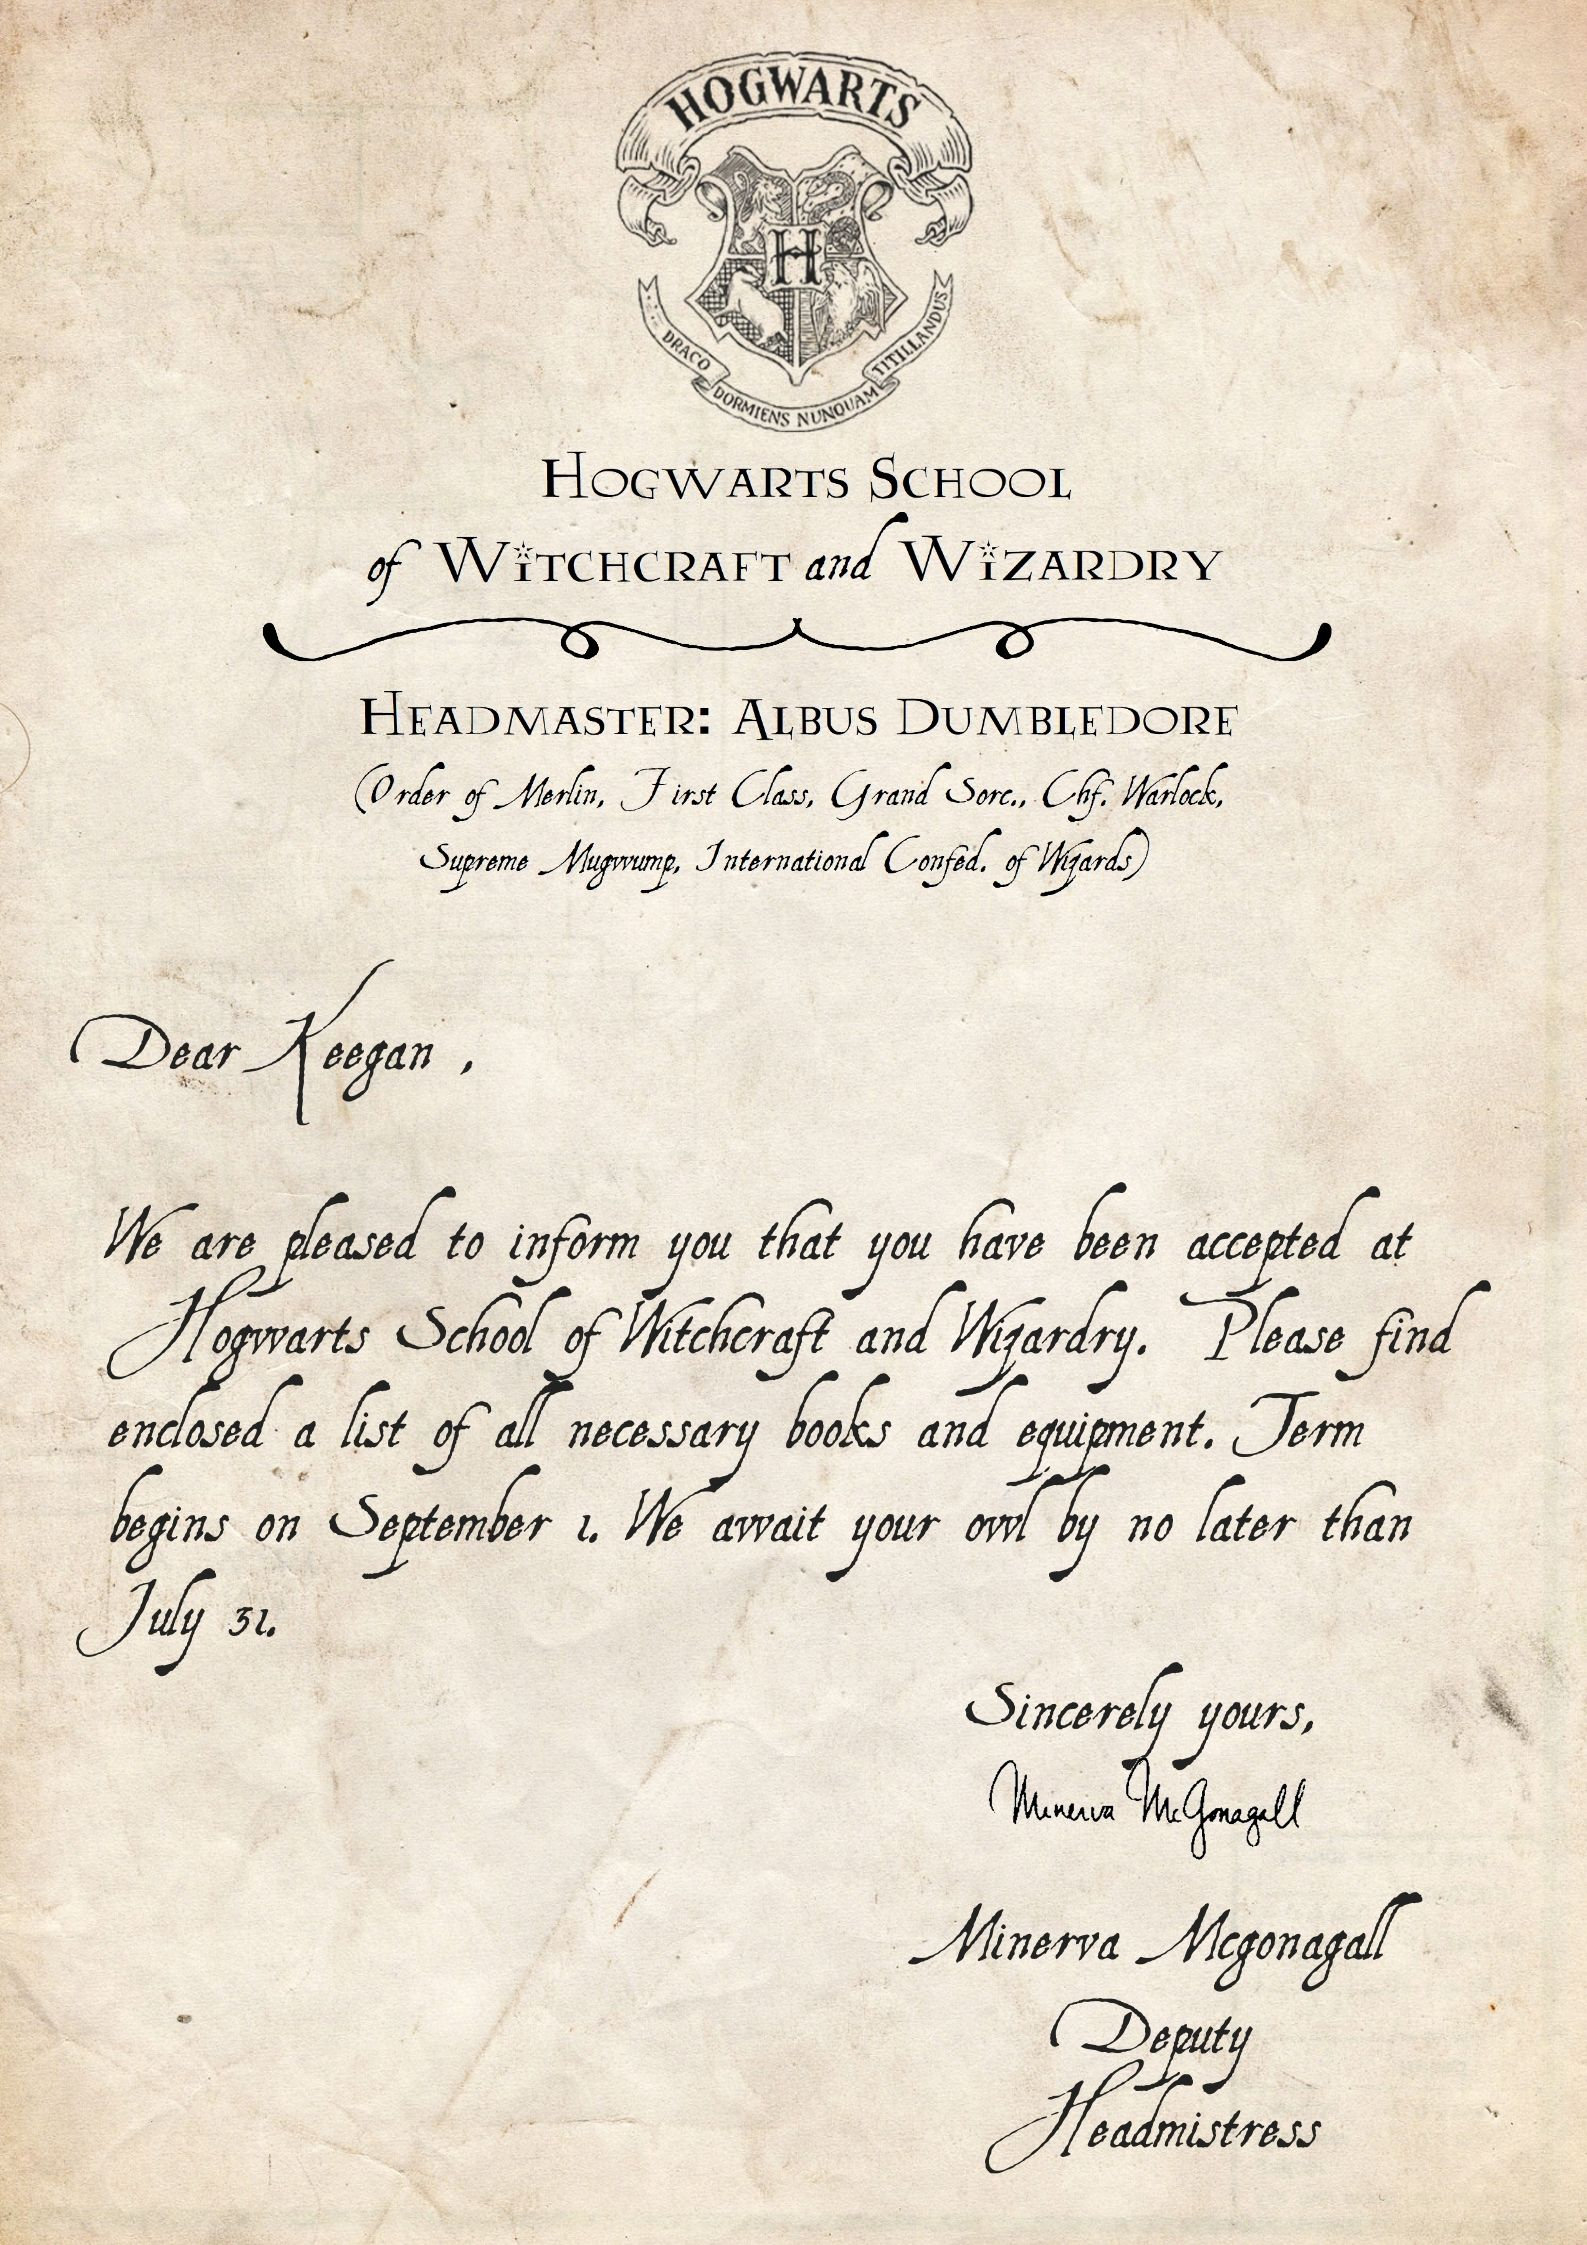 HOGWARTS
H
DRACO DORMIENS NUNQUAM TITILLANDUS
HOGWARTS SCHOOL
of WITCHCRAFT and WIZARDRY
HEADMASTER: ALBUS DUMBLEDORE
(Order of Merlin, First Class, Grand Sorc., Chf. Warlock,
Supreme Mugwump, International Confed. of Wizards)
Dear Keegan ,
We are pleased to inform you that you have been accepted at
Hogwarts School of Witchcraft and Wizardry. Please find
enclosed a list of all necessary books and equipment. Term
begins on September 1. We await your owl by no later than
July 31.
Sincerely yours,
Minerva McGonagall
Minerva Mcgonagall
Deputy
Headmistress